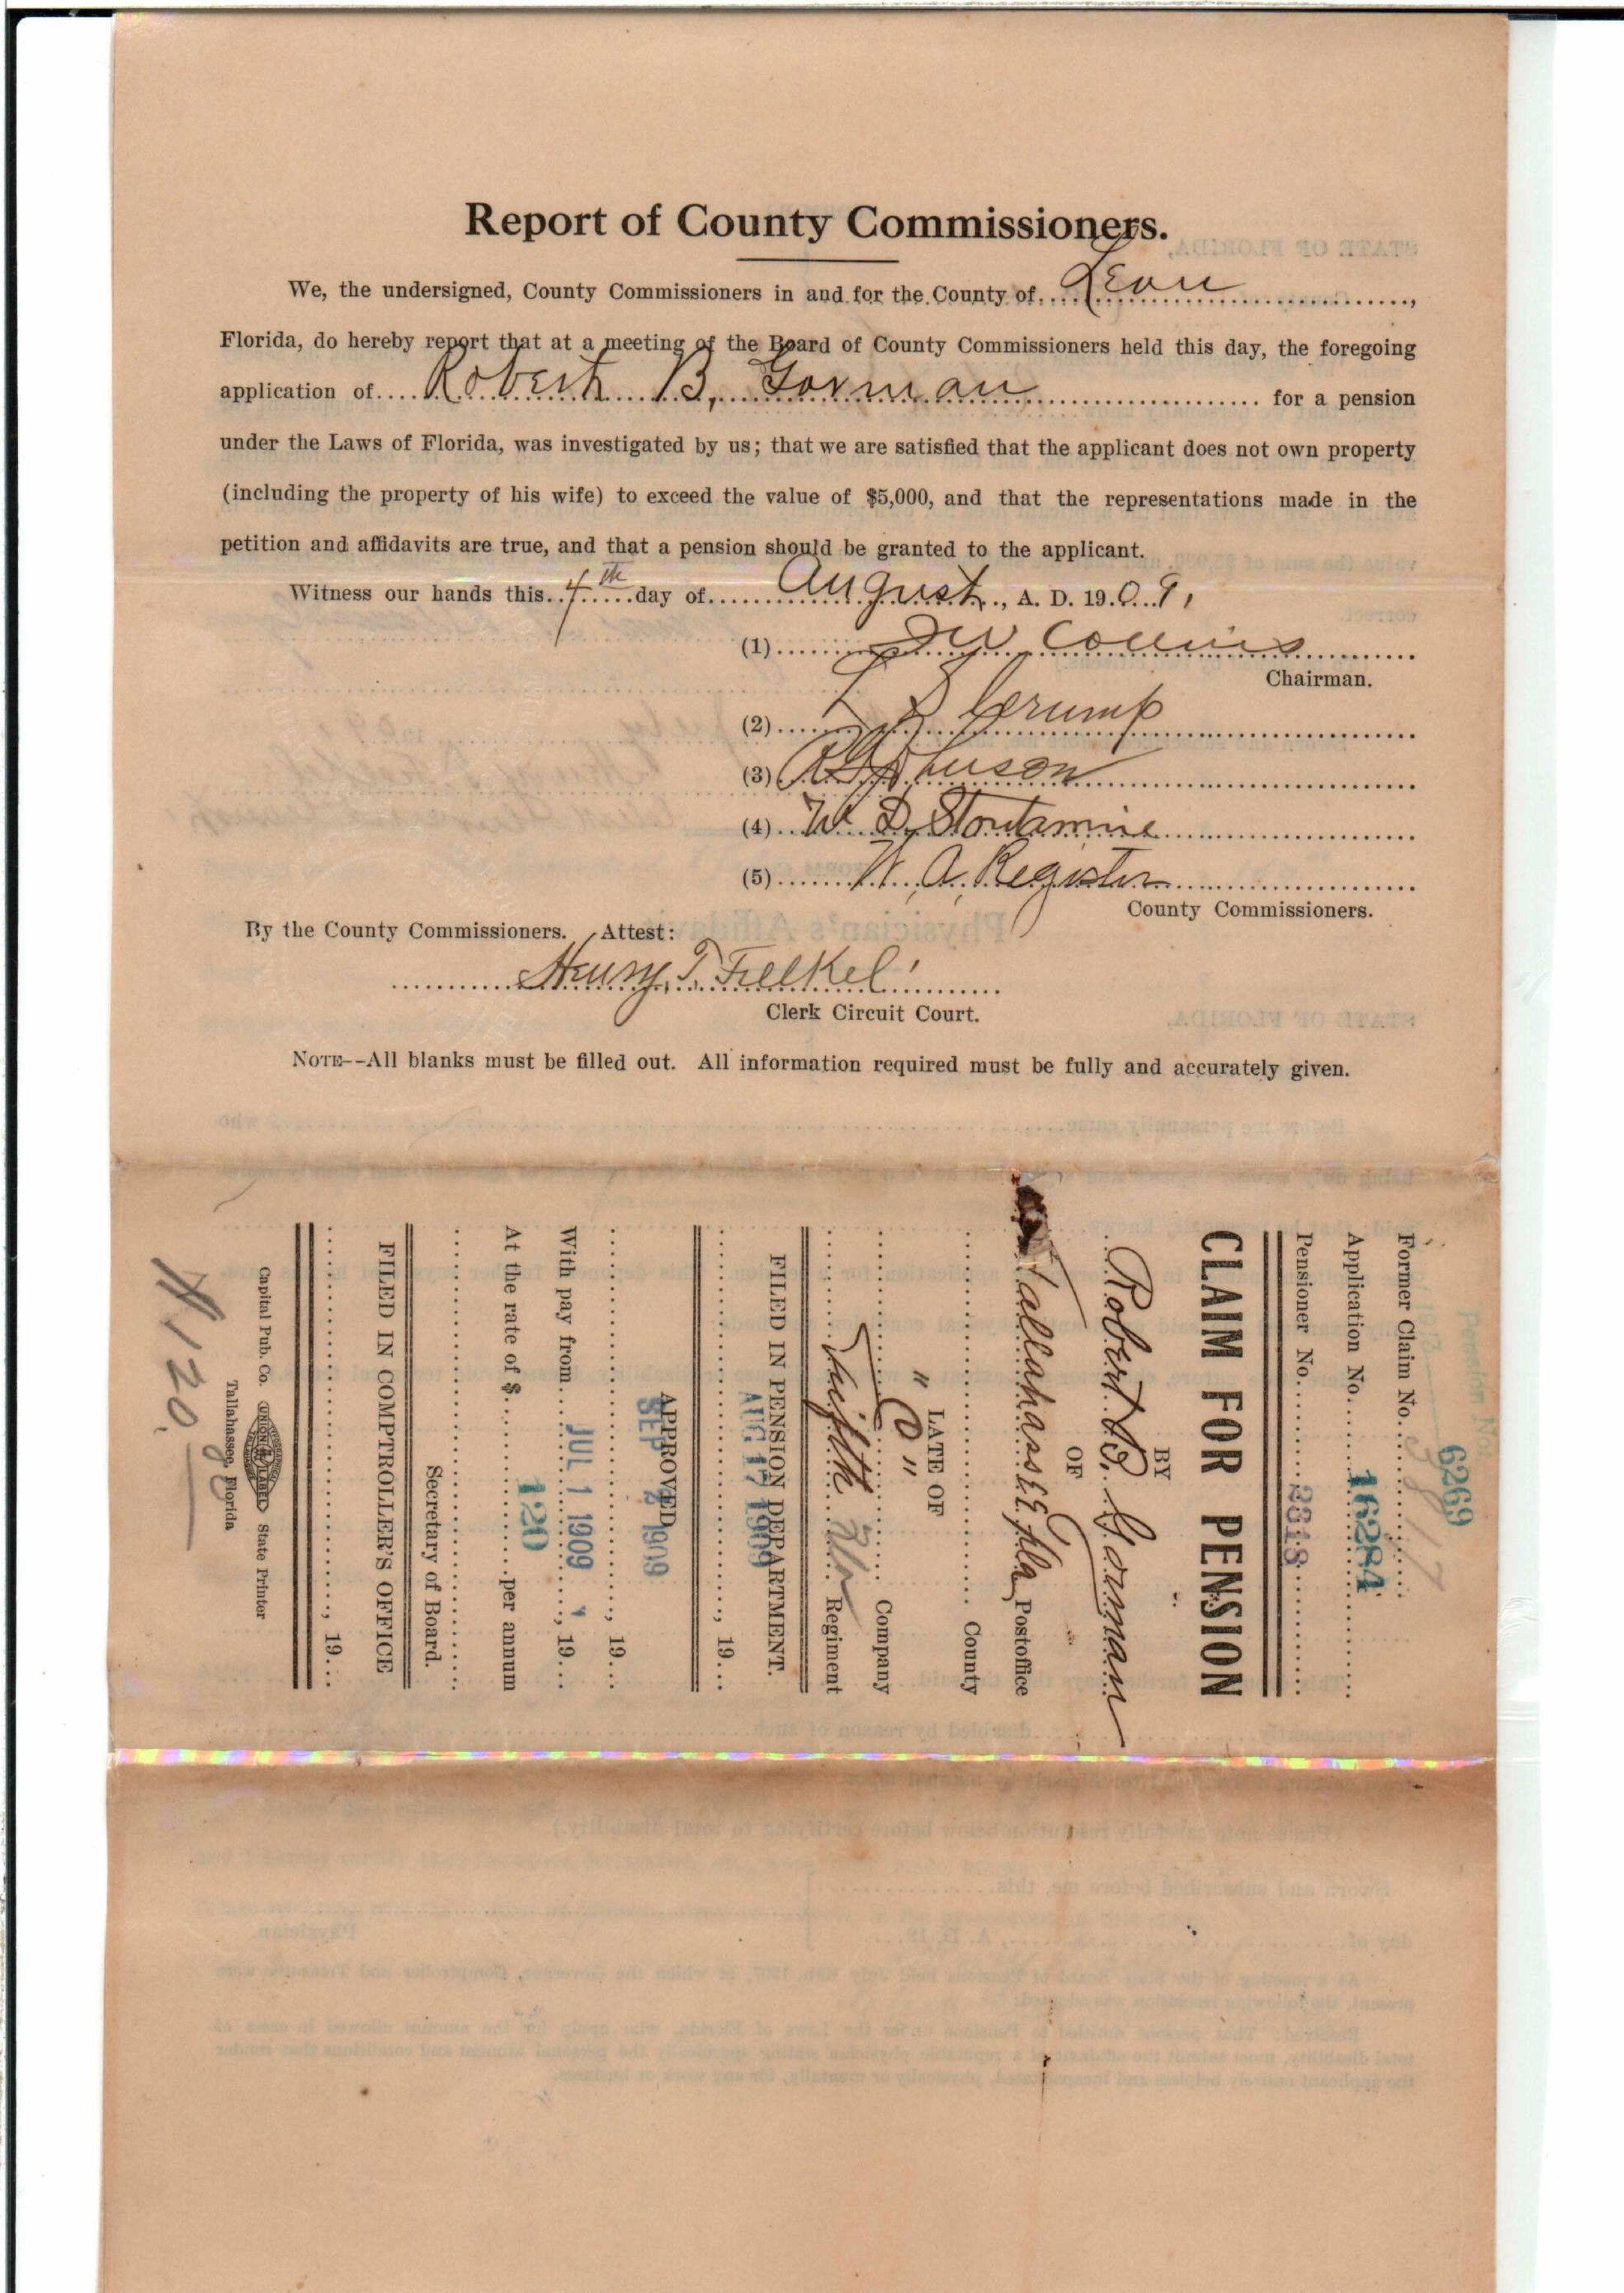 Report of County Commissioners.
We, the undersigned, County Commissioners in and for the County of Leon,
Florida, do hereby report that at a meeting of the Board of County Commissioners held this day, the foregoing
application of Robert B. Gorman for a pension
under the Laws of Florida, was investigated by us; that we are satisfied that the applicant does not own property
(including the property of his wife) to exceed the value of $5,000, and that the representations made in the
petition and affidavits are true, and that a pension should be granted to the applicant.
Witness our hands this 4th day of August, A. D. 1909,
(1) J W Collins
Chairman.
(2) L S Crump
(3)
(4) W. D. Stoutamire
(5) W. A. Register
County Commissioners.
By the County Commissioners. Attest:
Henry T. Felkel
Clerk Circuit Court.
NOTE--All blanks must be filled out. All information required must be fully and accurately given.
Pension No.
6269
Former Claim No.
Application No. 16284
Pensioner No. 3318
CLAIM FOR PENSION
BY
Robert B. Gorman
OF
Tallahassee Fla Postoffice
County
LATE OF
" C " Company
Fifth Fla Regiment
FILED IN PENSION DEPARTMENT.
AUG 17 1909, 19
APPROVED
SEP 2 1909
, 19
With pay from JUL 1 1909, 19
At the rate of $ 120 per annum
Secretary of Board.
FILED IN COMPTROLLER'S OFFICE
, 19
Capital Pub. Co. UNION LABEL State Printer
Tallahassee, Florida
120